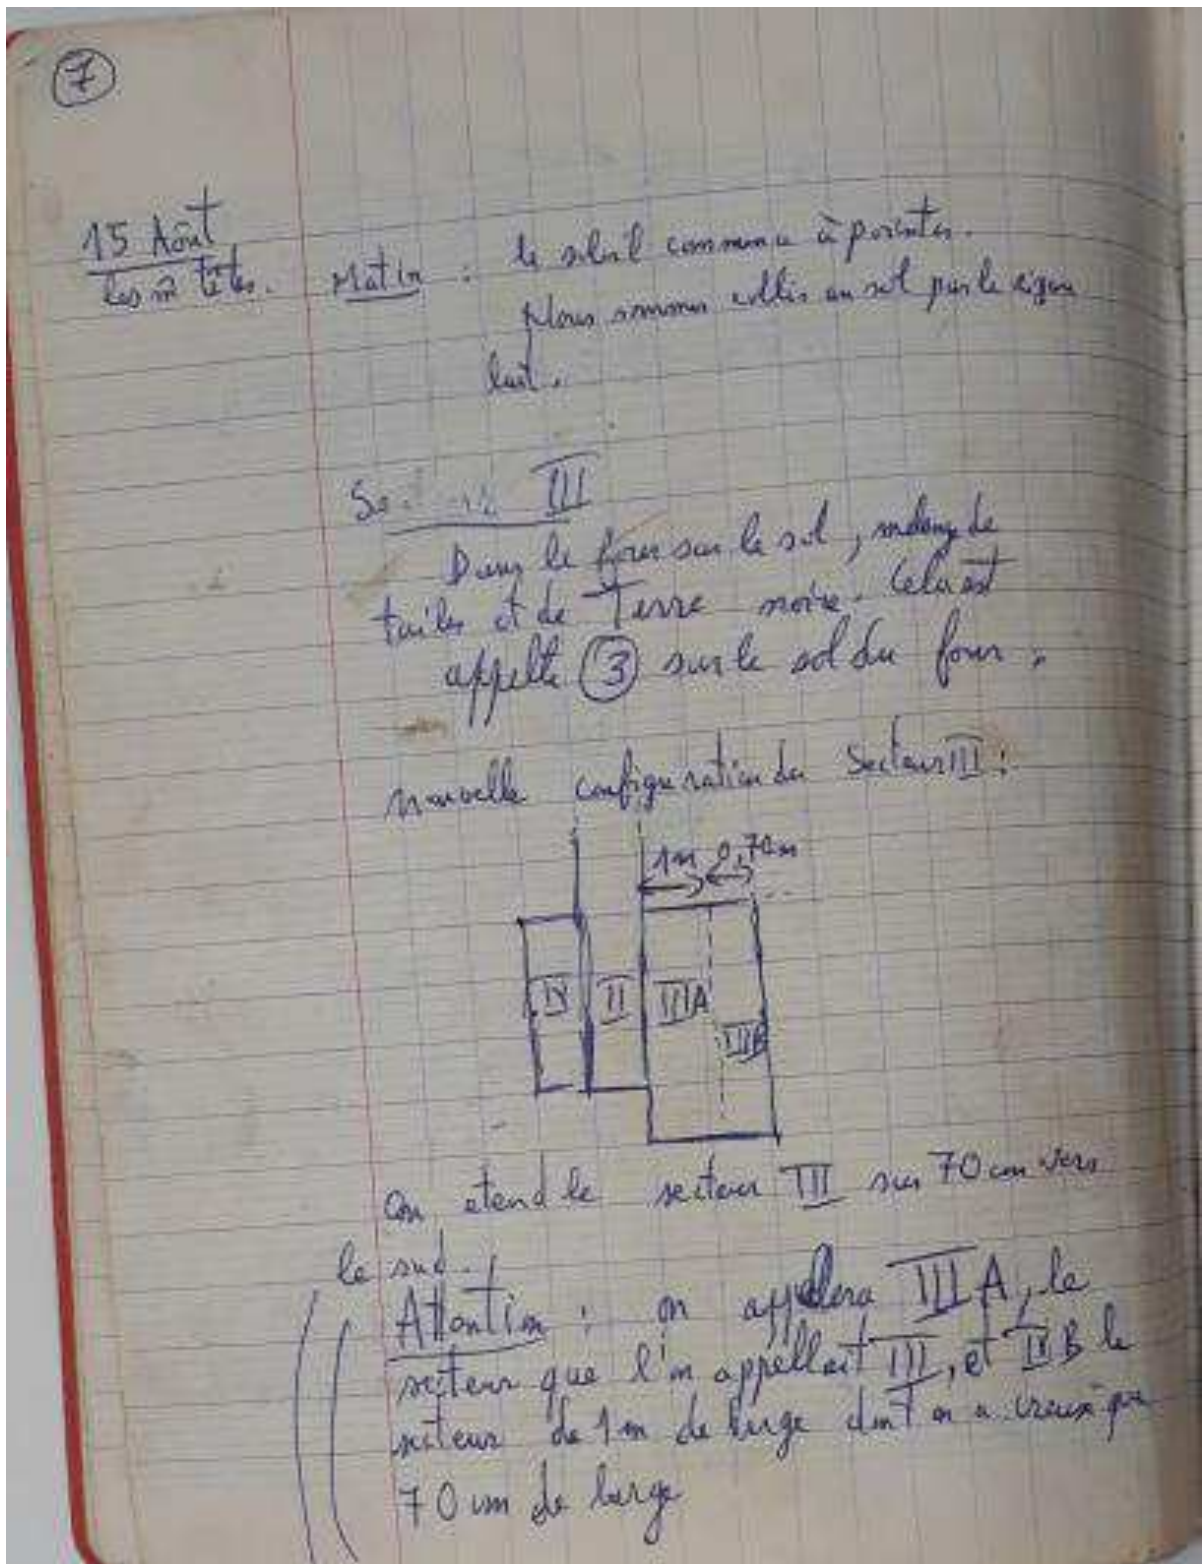 7
15 Août
les m̂ têtes. Matin : le soleil commence à pointer.
Nous sommes collés au sol par le
III
Dans le four sur le sol, mélange de
tuiles et de Terre noire. Cela est
appellé 3 sur le sol du four.
nouvelle configuration du Secteur III :
1m 0,70m
IV II IIIA
IIIB
On etend le secteur III sur 70 cm vers
le sud.
Attention : on appelera IIIA, le
secteur que l'on appellait III, et IIIB le
secteur de 1m de large dont on a creusé que
70 cm de large